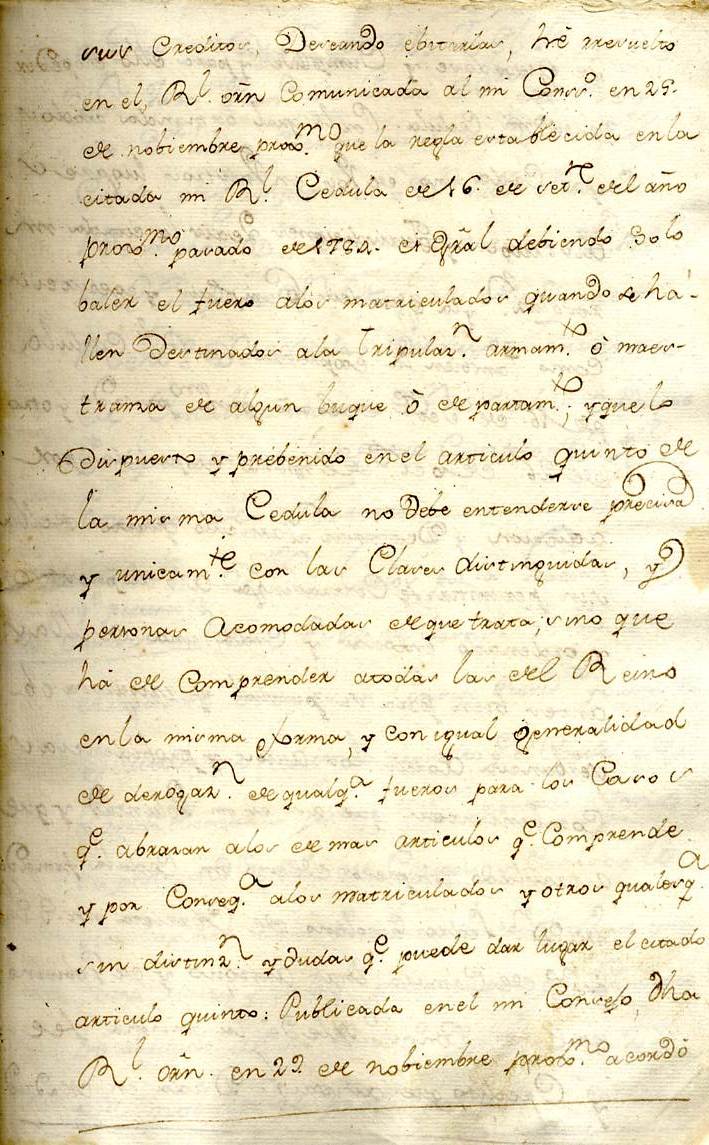 sus Creditos, Deseando ebitarlas, hè rresuelto
en el, Rl. orñ Comunicada al mi Consº. en 25.
de nobiembre proxmo. que la regla establecida en la
citada mi Rl. Cedula de 16. de setre. del año
proxmo. pasado de 1784. es Gral debiendo Solo
baler el fuero alos matriculados quando se há-
llen Destinados ala Tripulazn. armamto. ò maes-
tranza de algun buque ò departamto.; y que lo
Dispuesto y prebenido en el articulo quinto de
la misma Cedula no Debe entenderse precisa
y unicamte. con las Clases distinguidas, y
personas Acomodadas de que trata; sino que
há de Comprender atodas las del Reino
en la misma forma, y con igual generalidad
de derogazn. de qualqa. fueros para los Casos
qe. abrazan alos de mas articulos qe. Comprende
y por Conseqa. alos matriculados y otros qualesqa.
sin distinzn. y dudas qe. puede dar lugar el citado
articulo quinto: Publicada en el mi Consejo, dha
Rl. orñ. en 29. de nobiembre proxmo. acordò